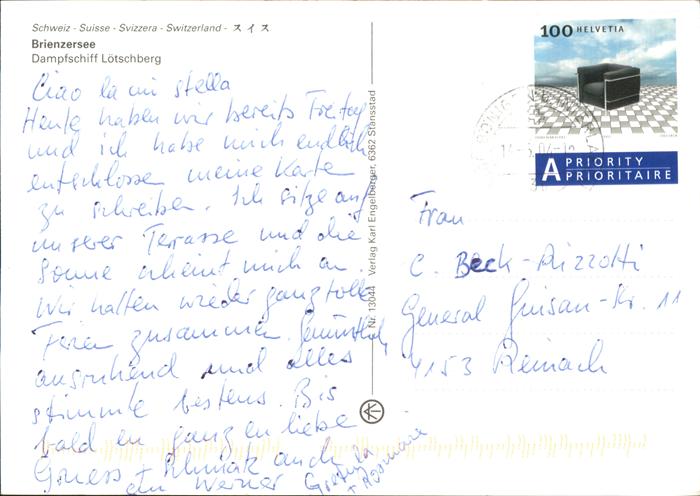 Schweiz - Suisse - Svizzera - Switzerland - スイス
Brienzersee
Dampfschiff Lötschberg
Ciao la mi stella
Heute haben wir bereits Freitag
und ich habe mich endlich
entschlossen meine Karte
zu schreiben. Ich sitze auf
unserer Terrasse und die
Sonne scheint mich an.
Wir hatten wieder ganz tolle
Ferien zusammen. Gemütlich,
ausruhend und alles
stimmte bestens. Bis
bald en ganz en liebe
Gruess + Schmutz auch
en Werner
+ Rosmarie
Nr. 13044 Verlag Karl Engelberger, 6362 Stansstad
100 HELVETIA
A PRIORITY
PRIORITAIRE
Frau
C. Beck-Rizzotti
General Guisan-Str. 11
4153 Reinach